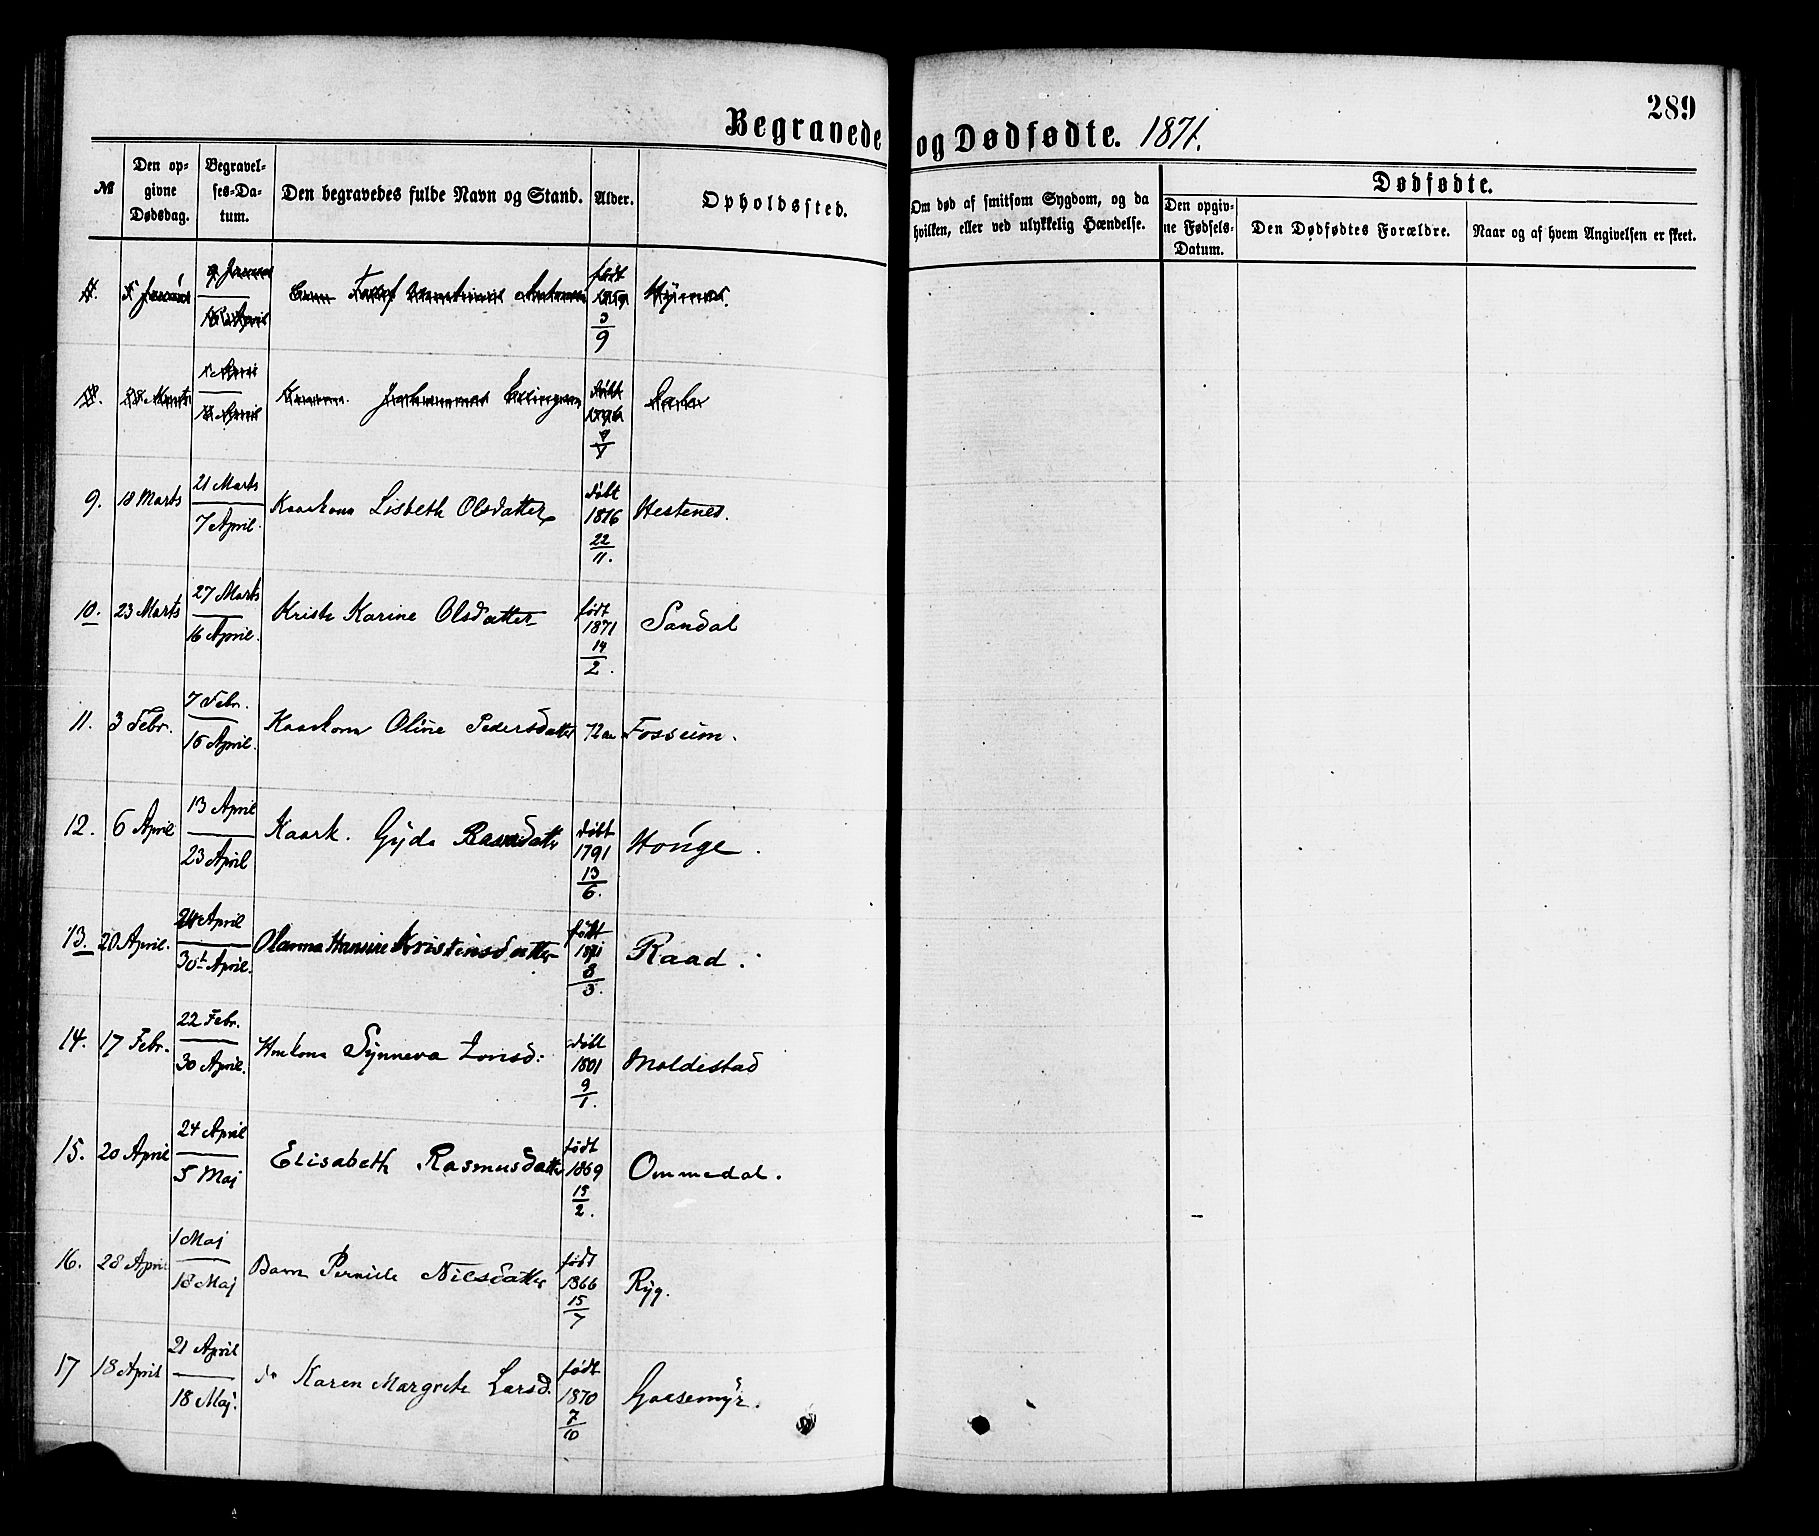 289
Begravede og Dødfødte. 1871.
№
Den opgivne Dødsdag.
Begravelses-Datum.
Den begravedes fulde Navn og Stand.
Alder.
Opholdssted.
Om død af smitsom Sygdom, og da hvilken, eller ved ulykkelig Hændelse.
Dødfødte.
Den opgivne Fødsels-Datum.
Den Dødfødtes Forældre.
Naar og af hvem Angivelsen er skeet.
9. 18 Marts 21 Marts / 7 April. Kaarkone Lisbeth Olsdatter døbt 1816 22/11. Hestenes.
10. 23 Marts 27 Marts / 16 April. Kriste Karine Olsdatter født 1871 14/2. Sandal
11. 3 Febr. 7 Febr. / 16 April. Kaarkone Oline Pedersdatter 72 aar Fossum.
12. 6 April 13 April / 23 April Kaark. Gyda døbt 1791 13/6. Honge.
13. 20 April. 24 April / 30t April. Hansine Kristensdatter født 1871 8/3. Raad.
14. 17 Febr. 22 Febr. / 30 April. Synneva døbt 1801 9/1. Moldestad
15. 20 April 24 April / 5 Maj Elisabeth Rasmusdatter født 1869 15/2. Ommedal.
16. 28 April 1 Maj / 18 Maj Barn Pernille Nilsdatter født 1866 15/7 Ryg.
17 18 April 21 April / 18 Maj. do Karen Margrete Larsd. født 1870 7/10 Gaasemyr.